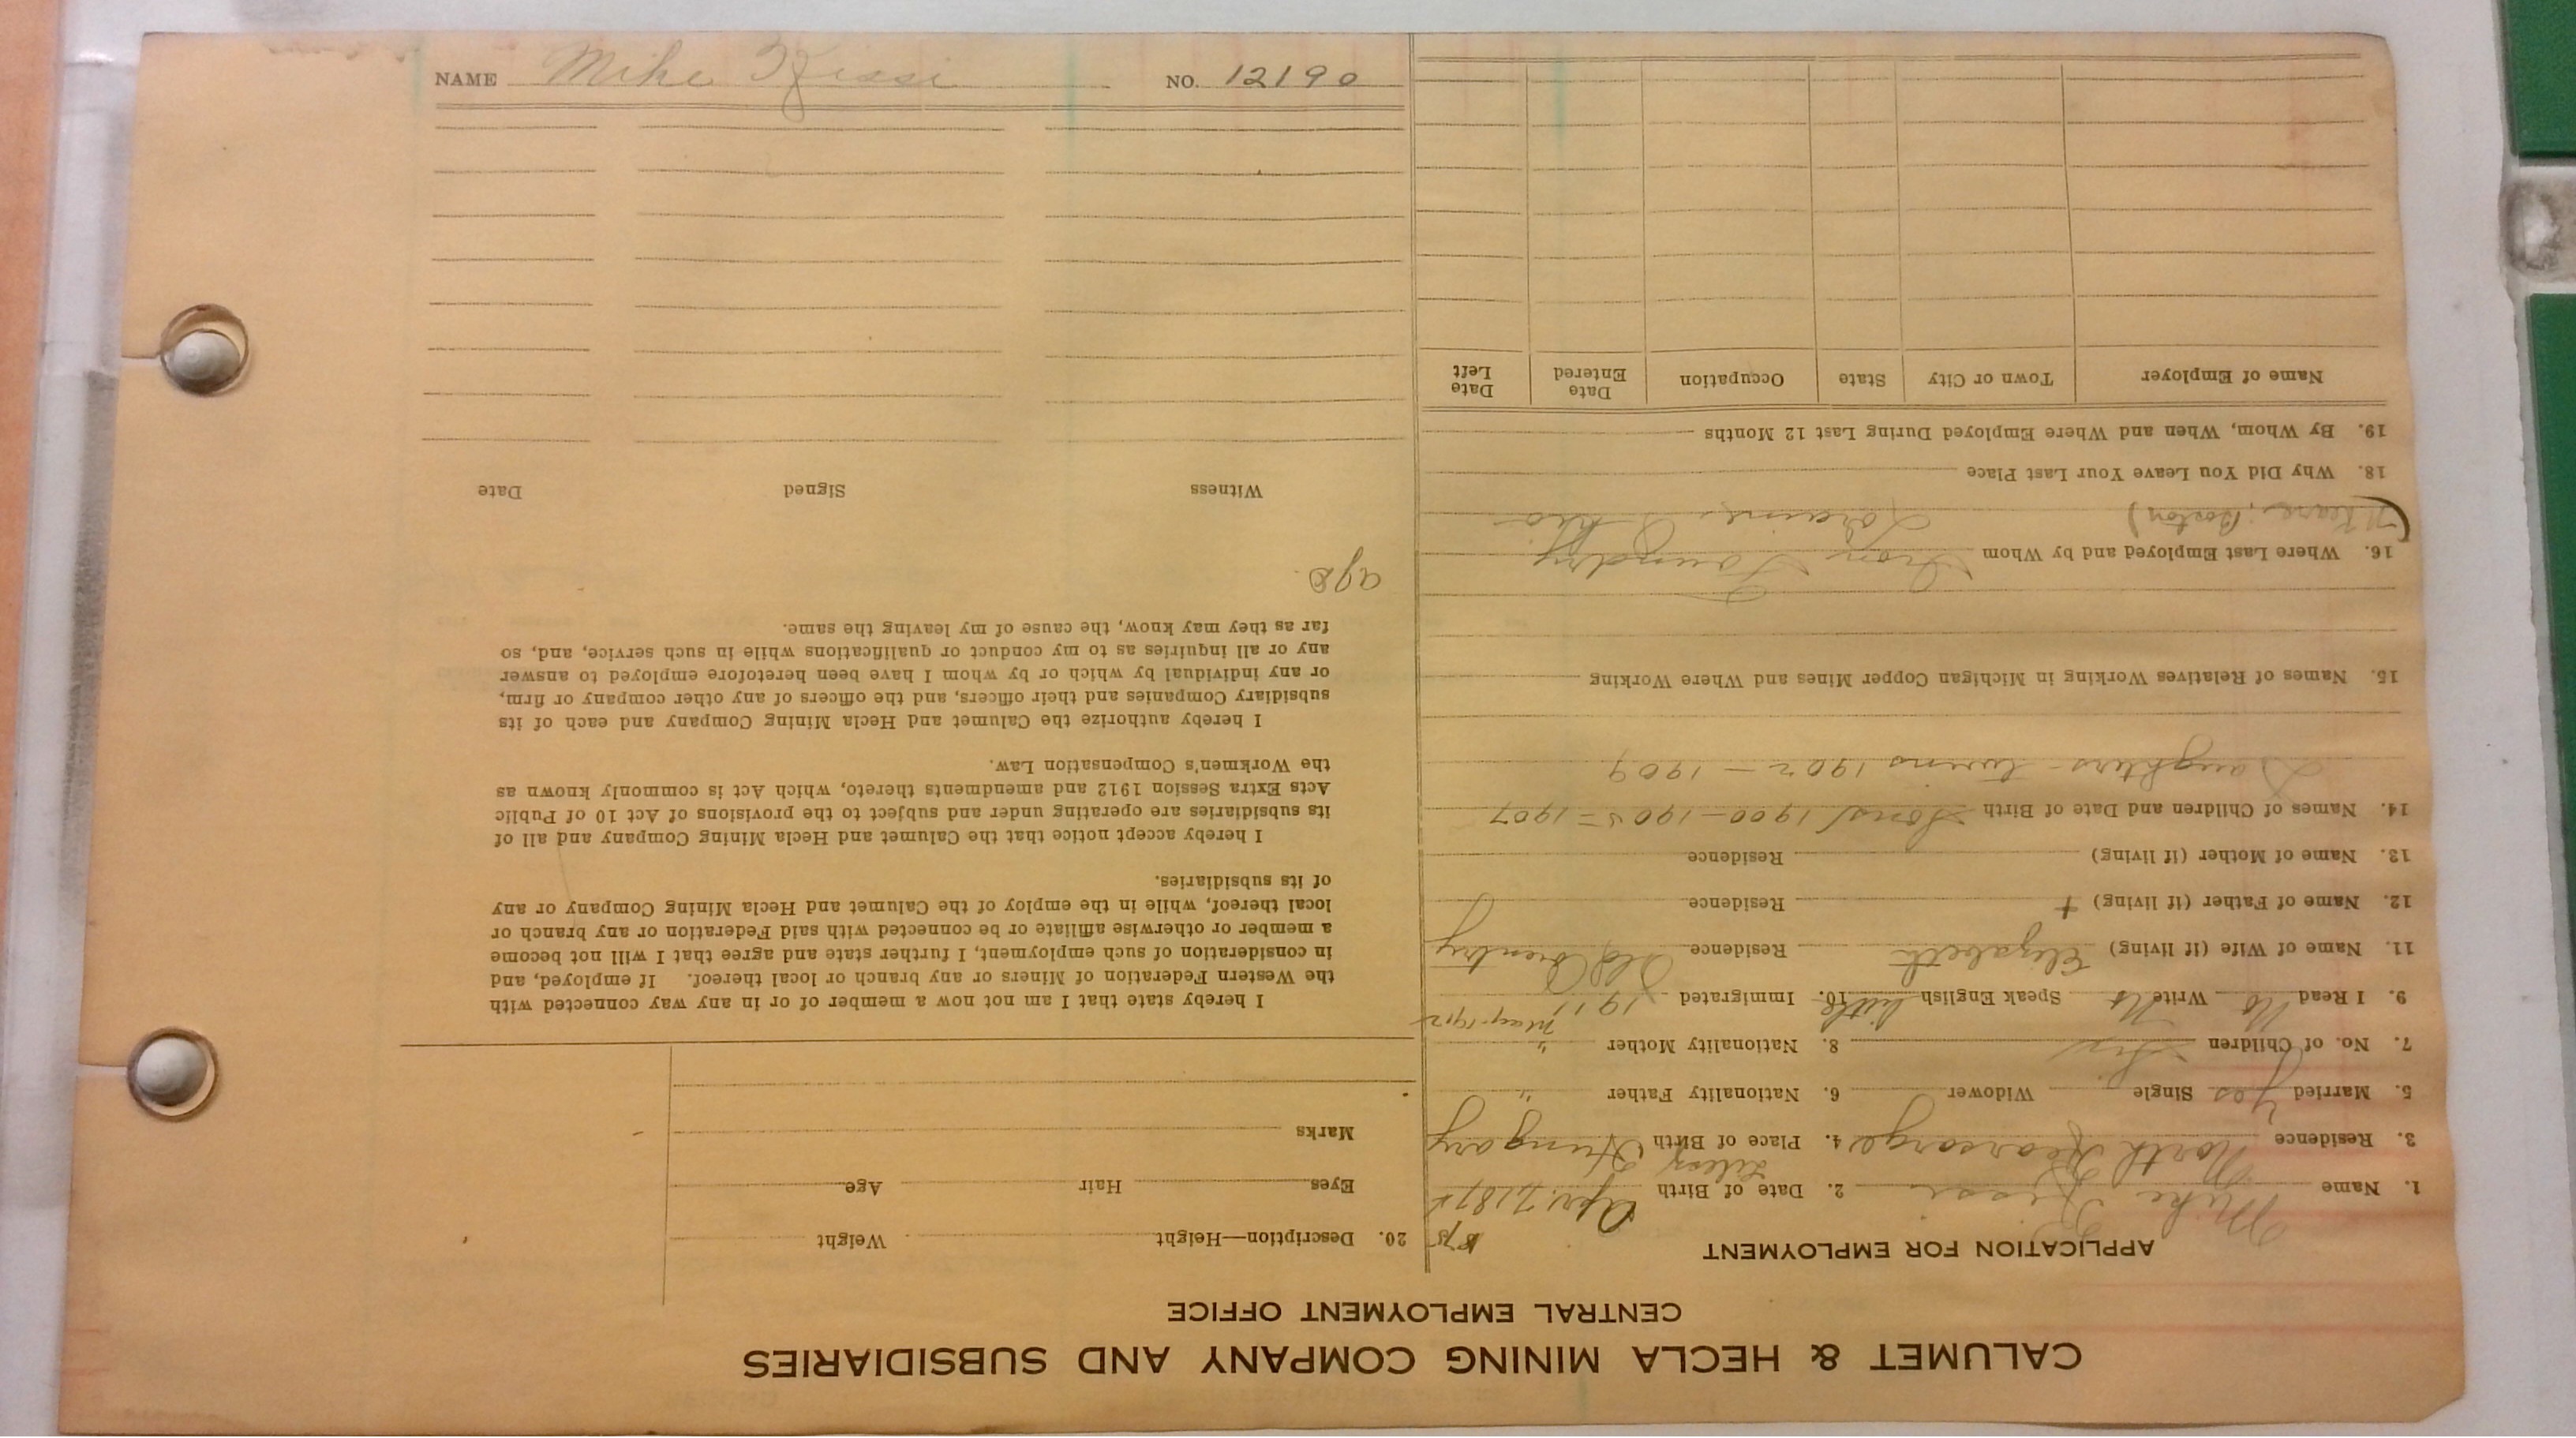 CALUMET & HECLA MINING COMPANY AND SUBSIDIARIES
CENTRAL EMPLOYMENT OFFICE
APPLICATION FOR EMPLOYMENT
1. Name Mike 2. Date of Birth Apr. 7, 1875
3. Residence North Kearsarge 4. Place of Birth Hungary
5. Married Yes Single Widower 6. Nationality Father "
7. No. of Children Six 8. Nationality Mother "
May-1912
9. I Read No Write No Speak English little 10. Immigrated 1911
11. Name of Wife (if living) Elizabeth Residence Old Country
12. Name of Father (if living) † Residence
13. Name of Mother (if living) Residence
14. Names of Children and Date of Birth Sons 1900-1905-1907
Daughters-twins 1902-1909
15. Names of Relatives Working in Michigan Copper Mines and Where Working
16. Where Last Employed and by Whom Iron Foundry
Boston) Loraine, Ohio
18. Why Did You Leave Your Last Place
19. By Whom, When and Where Employed During Last 12 Months
Name of Employer Town or City State Occupation Date Entered Date Left
20. Description—Height Weight
Eyes Hair Age
Marks
I hereby state that I am not now a member of or in any way connected with
the Western Federation of Miners or any branch or local thereof. If employed, and
in consideration of such employment, I further state and agree that I will not become
a member or otherwise affiliate or be connected with said Federation or any branch or
local thereof, while in the employ of the Calumet and Hecla Mining Company or any
of its subsidiaries.
I hereby accept notice that the Calumet and Hecla Mining Company and all of
its subsidiaries are operating under and subject to the provisions of Act 10 of Public
Acts Extra Session 1912 and amendments thereto, which Act is commonly known as
the Workmen's Compensation Law.
I hereby authorize the Calumet and Hecla Mining Company and each of its
subsidiary Companies and their officers, and the officers of any other company or firm,
or any individual by which or by whom I have been heretofore employed to answer
any or all inquiries as to my conduct or qualifications while in such service, and, so
far as they may know, the cause of my leaving the same.
Witness Signed Date
NAME Mike NO. 12190